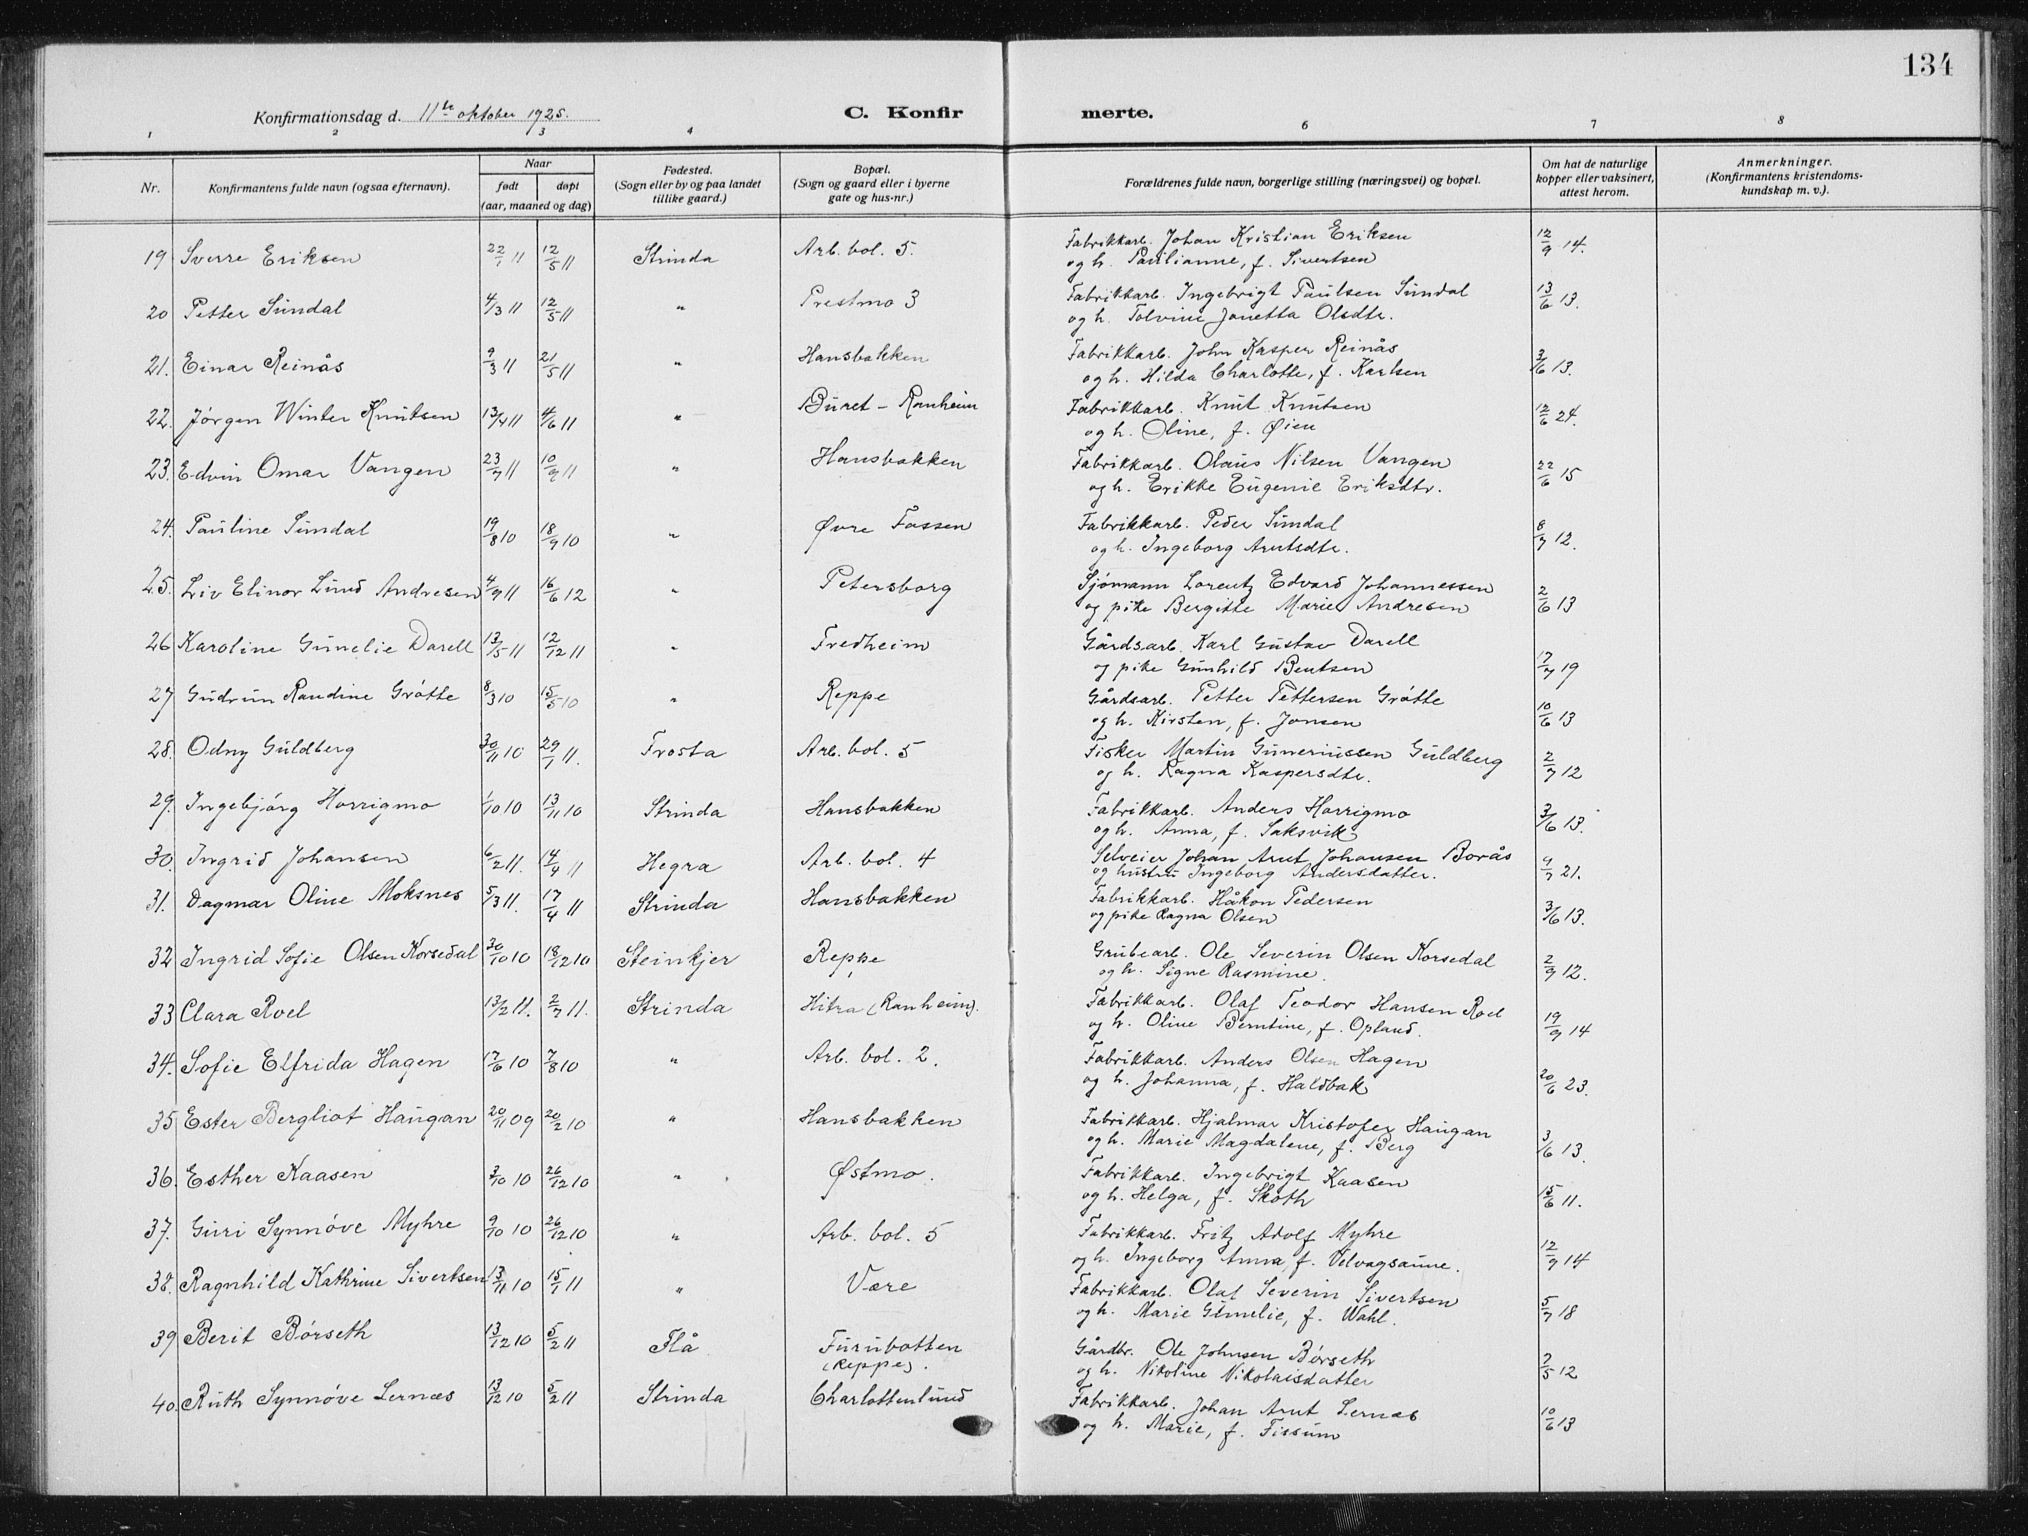 134
Konfirmationsdag d. 11te oktober 1925.
C. Konfir merte.
1 2 3 4 6 7 8
Nr.
Konfirmantens fulde navn (ogsaa efternavn).
Naar
født døpt
(aar, maaned og dag)
Fødested.
(Sogn eller by og paa landet
tillike gaard.)
Bopæl.
(Sogn og gaard eller i byerne
gate og hus-nr.)
Forældrenes fulde navn, borgerlige stilling (næringsvei) og bopæl.
Om hat de naturlige
kopper eller vaksinert,
attest herom.
Anmerkninger.
(Konfirmantens kristendoms-
kundskap m. v.).
19 Sverre Eriksen 22/1 11 12/5 11 Strinda Arb. bol. 5. Fabrikkarb. Johan Kristian Eriksen 12/9 14.
og h. Paulianne, f. Sivertsen
20 Petter Sundal 4/3 11 12/5 11 " Prestmo 3 Fabrikkarb. Ingebrigt Paulsen Sundal 13/6 13.
og h. Tolvine Janetta Olsdtr.
21. Einar Reinås 9/3 11 21/5 11 " Hansbakken Fabrikkarb. John Kasper Reinås 3/6 13.
og h. Hilda Charlotte, f. Karlsen
22. Jørgen Winter Knutsen 13/4 11 4/6 11 " Buret - Ranheim Fabrikkarb. Knut Knutsen 12/6 24.
og h. Oline, f. Øien
23. Edvin Omar Vangen 23/7 11 10/9 11 " Hansbakken Fabrikkarb. Olaus Nilsen Vangen 22/6 15
og h. Erikke Eugenie Eriksdtr.
24. Pauline Sundal 19/8 10 18/9 10 " Øvre Fossen Fabrikkarb. Peder Sundal 8/7 12.
og h. Ingeborg Arntsdtr.
25. Liv Elinor Lund Andresen 4/9 11 16/6 12 " Petersborg Sjømann Lorentz Edvard Johannessen 2/6 13
og pike Bergitte Marie Andresen
26 Karoline Gunelie Darell 13/5 11 12/12 11 " Fredheim Gårdsarb. Karl Gustav Darell 17/7 19
og pike Gunhild Bentsen
27 Gudrun Randine Grøtte 8/3 10 15/5 10 " Reppe Gårdsarb. Petter Pettersen Grøtte 10/6 13
og h. Kirsten, f. Jonsen
28. Odny Guldberg 30/11 10 29/1 11. Frosta Arb. bol. 5 Fisker Martin Guneriussen Guldberg 2/7 12
og h. Ragna Kaspersdtr.
29. Ingebjørg Horrigmo 1/10 10 13/11 10 Strinda Hansbakken Fabrikkarb. Anders Horrigmo 3/6 13.
og h. Anna, f. Saksvik
30. Ingrid Johansen 6/2 11. 14/4 11 Hegra Arb. bol. 4 Selveier Johan Arnt Johansen Borås 4/7 21.
og hustru Ingeborg Andersdatter.
31. Dagmar Oline Moksnes 5/3 11. 17/4 11 Strinda Hansbakken Fabrikkarb. Håkon Pedersen 3/6 13.
og pike Ragna Olsen
32 Ingrid Sofie Olsen Korsedal 30/10 10 18/12 10 Steinkjer Reppe Grubearb. Ole Severin Olsen Korsedal 2/9 12.
og h. Signe Rasmine
33 Clara Roel 13/2 11. 2/7 11. Strinda Hitra (Ranheim). Fabrikkarb. Olaf Teodor Hansen Roel 19/9 14
og h. Oline Berntine, f. Opland.
34. Sofie Elfrida Hagen 17/6 10 7/8 10 " Arb. bol. 2. Fabrikkarb. Anders Olsen Hagen 20/6 23.
og h. Johanna, f. Haldbak
35 Ester Bergliot Haugan 20/11 09 20/2 10 " Hansbakken Fabrikkarb. Hjalmar Kristofer Haugan 3/6 13
og h. Marie Magdalene, f. Berg
36. Esther Kaasen 3/10 10 26/12 10 " Østmo. Fabrikkarb. Ingebrigt Kaasen 15/6 11.
og h. Helga, f. Skoth
37. Guri Synnøve Myhre 9/10 10 26/12 10 " Arb. bol. 5 Fabrikkarb. Fritz Adolf Myhre 12/9 14
og h. Ingeborg Anna, f. Velvagsaune.
38. Ragnhild Kathrine Sivertsen 13/11 10 15/1 11 " Være Fabrikkarb. Olaf Severin Sivertsen 5/7 18
og h. Marie Gunelie, f. Wahl.
39 Berit Børseth 13/12 10 5/2 11 Flå Furubotten Gårdbr. Ole Johnsen Børseth 7/5 12
(Reppe). og h. Nikoline Nikolaisdatter
40. Ruth Synnøve Lernæs 13/12 10 5/2 11 Strinda Charlottenlund Fabrikkarb. Johan Arnt Lernæs 10/6 13
og h. Marie, f. Fissum